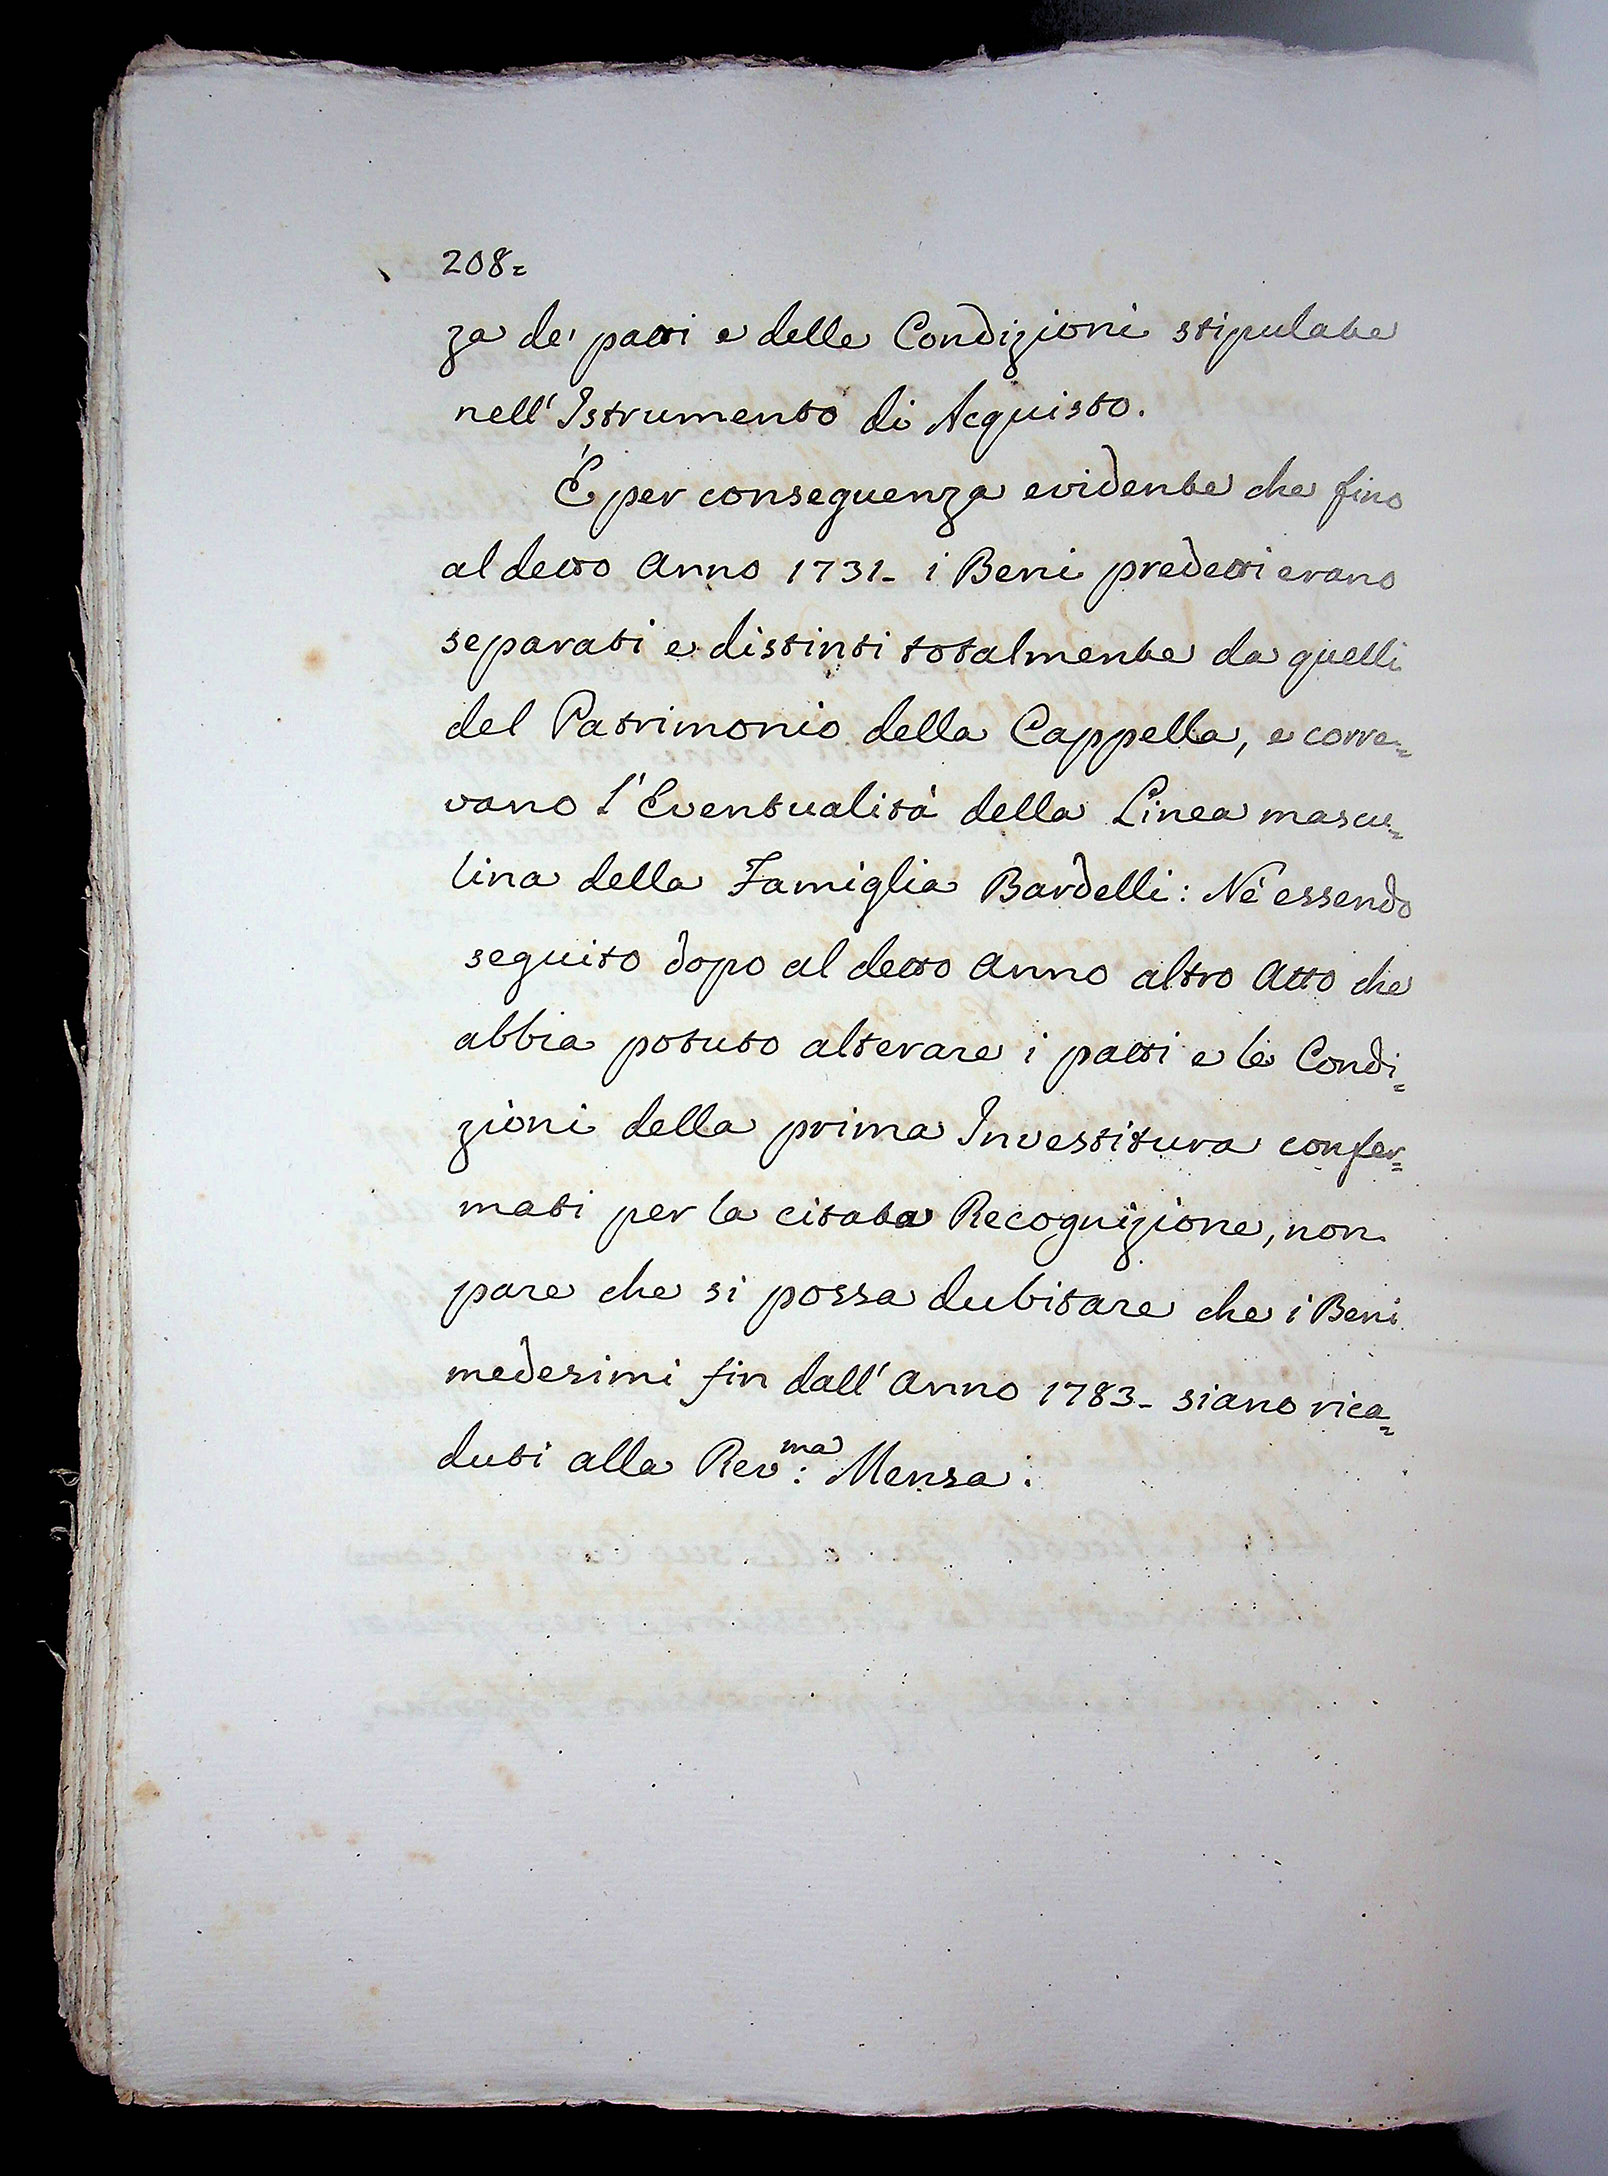 208=
za de' patti e delle Condizioni stipulate
nell'Istrumento di Acquisto.
È per conseguenza evidente che fino
al detto Anno 1731- i Beni predetti erano
separati e distinti totalmente da quelli
del Patrimonio della Cappella, e corre=
vano l'Eventualità della Linea mascu=
lina della Famiglia Bardelli: Nè essendo
seguito dopo al detto Anno altro Atto che
abbia potuto alterare i patti e le Condi=
zioni della prima Investitura confer=
mati per la citata Recognizione, non
pare che si possa dubitare che i Beni
medesimi fin dall'Anno 1783- siano rica=
duti alla Rev:ma Mensa.